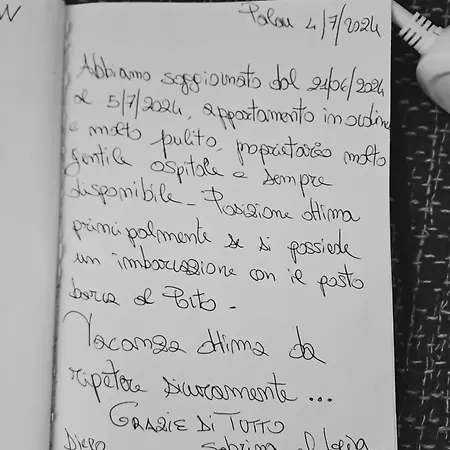 W
Palau 4/7/2024
Abbiamo soggiornato dal 24/06/2024
al 5/7/2024, appartamento in ordine
e molto pulito, proprietario molto
gentile ospitale e sempre
disponibile - Posizione ottima
principalmente se si possiede
un imbarcazione con il posto
barca al Porto -
Vacanza ottima da
ripetere sicuramente ...
GRAZIE DI TUTTO
Sabrina